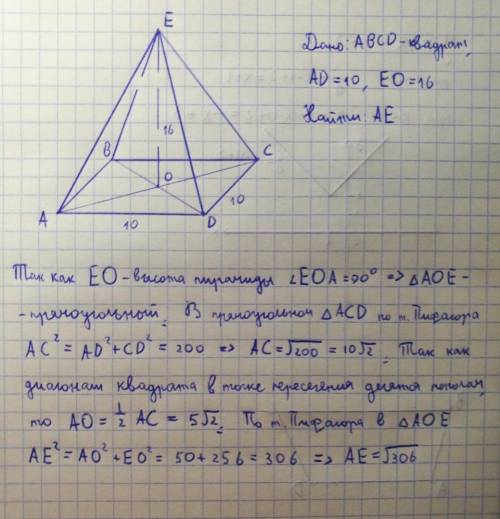 E
Дано: ABCD - квадрат,
AD = 10, EO = 16
Найти: AE
16
B
C
O
A
10
D
10
Так как EO - высота пирамиды ∠EOA = 90° => △AOE -
- прямоугольный. В прямоугольном △ACD по т. Пифагора
AC² = AD² + CD² = 200 => AC = √200 = 10√2. Так как
диагонали квадрата в точке пересечения делятся пополам,
то AO = 1/2 AC = 5√2. По т. Пифагора в △AOE
AE² = AO² + EO² = 50 + 256 = 306 => AE = √306